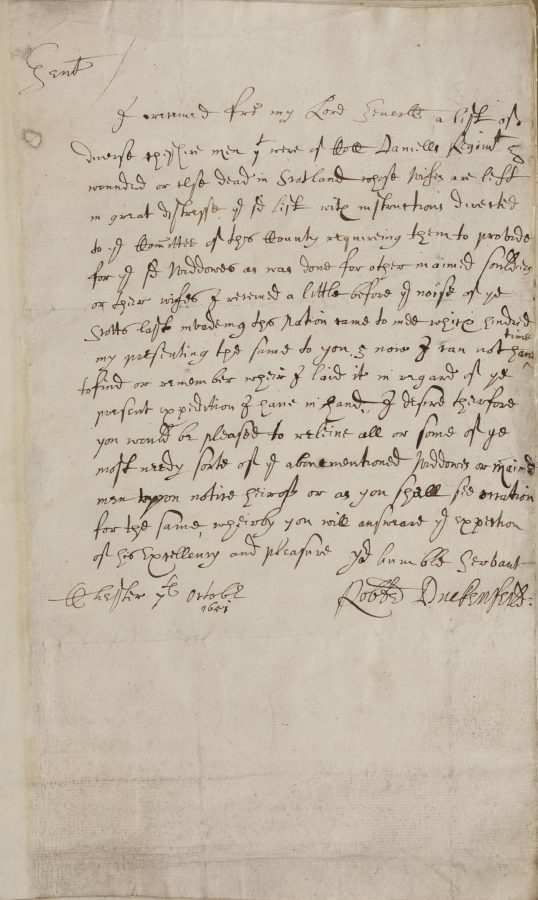 Gent
I received fro my Lord Generll a list of
diverse Cheshire men yt were of Coll Daniells Regimt
wounded or else dead in Scotland whose Wifes are left
in great distresse ye sd list with instructions directed
to ye Committee of this County requireing them to provide
for ye sd Widdowes as was done for other maimed souldiers
or their wifes I received a little before ye noise of ye
Scotts last invadeing this Nation came to mee which hindred
my presenting the same to you, & now I can not have time
to find or remember where I laid it in regard of ye
present expedition I have in hand, I desire therfore
you would be pleased to releive all or some of ye
most needy sorte of ye abovementioned Widdowes or maimed
men upon notice heirof or as you shall see occation
for the same, wheirby you will answare ye expection
of his Excellency and pleasure yor humble Servant
Chester Octobr Robt Duckenfeild:
1651